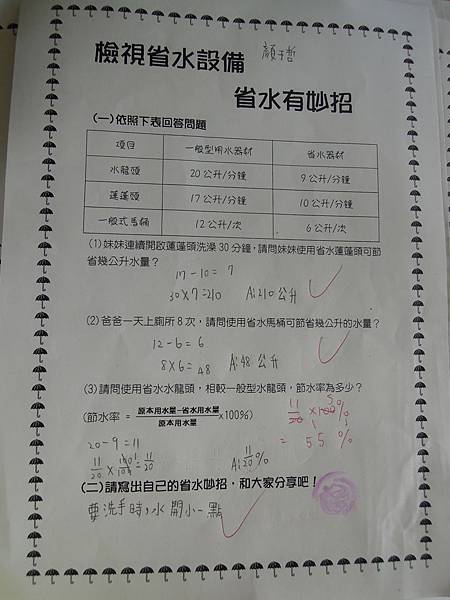 檢視省水設備 顏于哲
省水有妙招
(一)依照下表回答問題
項目 一般型用水器材 省水器材
水龍頭 20公升/分鐘 9公升/分鐘
蓮蓬頭 17公升/分鐘 10公升/分鐘
一般式馬桶 12公升/次 6公升/次
(1)妹妹連續開啟蓮蓬頭洗澡30分鐘,請問妹妹使用省水蓮蓬頭可節
省幾公升水量?
17-10=7
30×7=210 A:210公升
(2)爸爸一天上廁所8次,請問使用省水馬桶可節省幾公升的水量?
12-6=6
8×6=48 A:48公升
(3)請問使用省水水龍頭,相較一般型水龍頭,節水率為多少?
(節水率 = 原本用水量-省水用水量/原本用水量 ×100%)
11/20 ×100% 5
= 55%
20-9=11
11/20 × 100/100 = 11/20 A:11/20%
(二)請寫出自己的省水妙招,和大家分享吧!
要洗手時,水開小一點